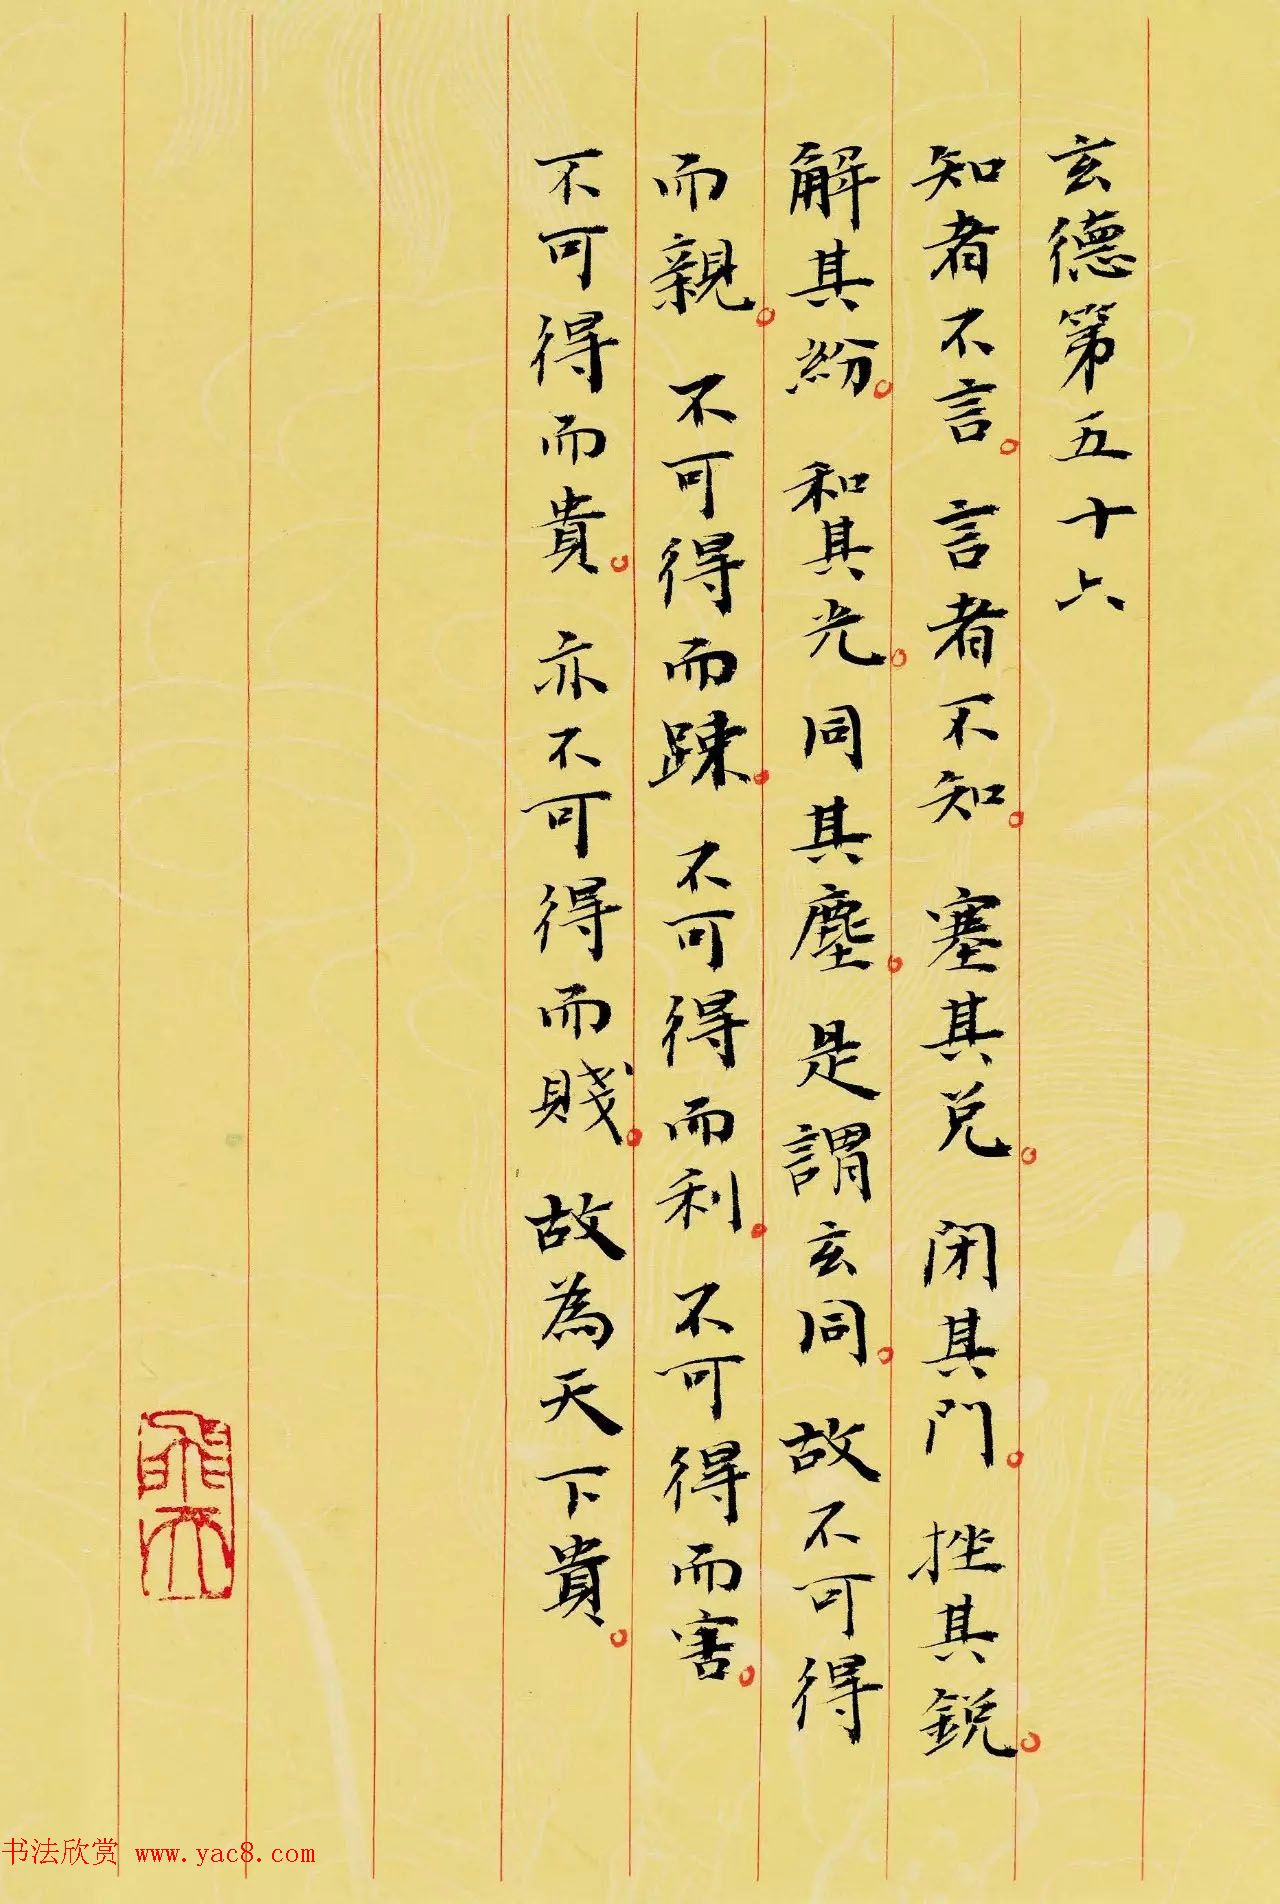 玄德第五十六
知者不言。言者不知。塞其兑。閉其門。挫其鋭。
解其紛。和其光。同其塵。是謂玄同。故不可得
而親。不可得而踈。不可得而利。不可得而害。
不可得而貴。亦不可得而賤。故為天下貴。
书法欣赏 www.yac8.com